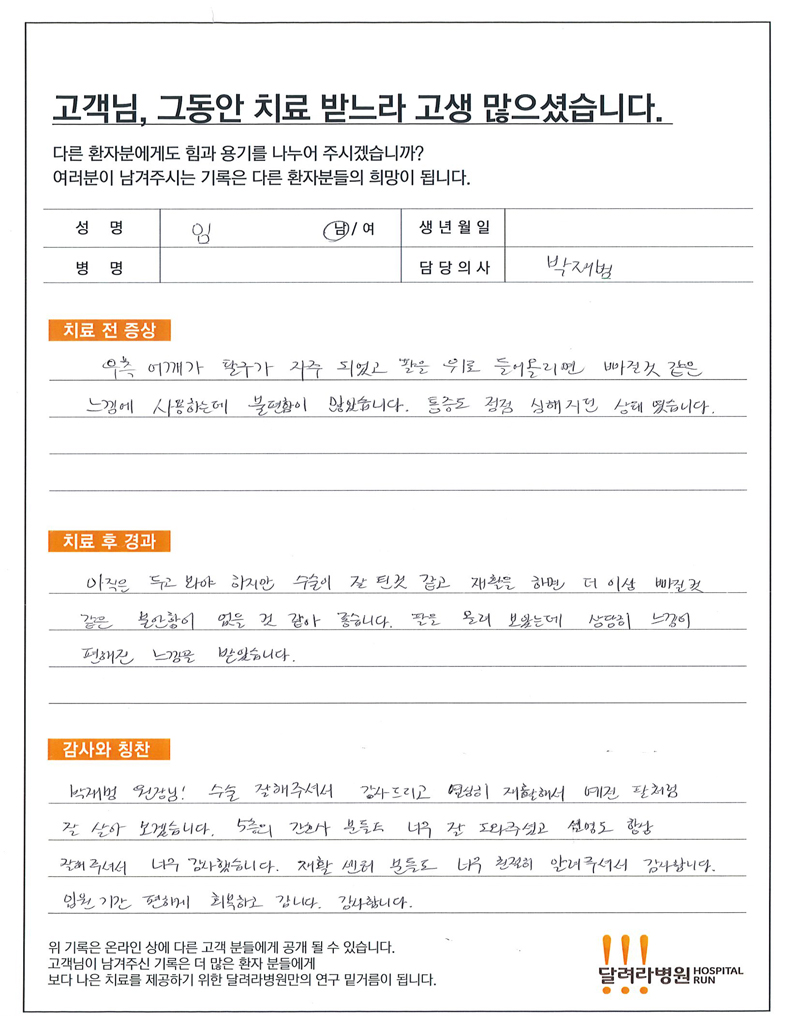 고객님, 그동안 치료 받느라 고생 많으셨습니다.
다른 환자분에게도 힘과 용기를 나누어 주시겠습니까?
여러분이 남겨주시는 기록은 다른 환자분들의 희망이 됩니다.
성 명 임 남/여 생년월일
병 명 담당의사 박재범
치료 전 증상
우측 어깨가 탈구가 자주 되었고 팔을 위로 들어올리면 빠질것 같은
느낌에 사용하는데 불편함이 많았습니다. 통증도 점점 심해지던 상태 였습니다.
치료 후 경과
아직은 두고 봐야 하지만 수술이 잘 된것 같고 재활을 하면 더 이상 빠질것
같은 불안함이 없을 것 같아 좋습니다. 팔을 올려 보았는데 상당히 느낌이
편해진 느낌을 받았습니다.
감사와 칭찬
박재범 원장님! 수술 잘해주셔서 감사드리고 열심히 재활해서 예전 팔처럼
잘 살아 보겠습니다. 5층의 간호사 분들도 너무 잘 도와주셨고 설명도 항상
잘해주셔서 너무 감사했습니다. 재활 센터 분들도 너무 친절히 알려주셔서 감사합니다.
입원 기간 편하게 회복하고 갑니다. 감사합니다.
위 기록은 온라인 상에 다른 고객 분들에게 공개 될 수 있습니다.
고객님이 남겨주신 기록은 더 많은 환자 분들에게
보다 나은 치료를 제공하기 위한 달려라병원만의 연구 밑거름이 됩니다.
!!!
달려라병원 HOSPITAL RUN